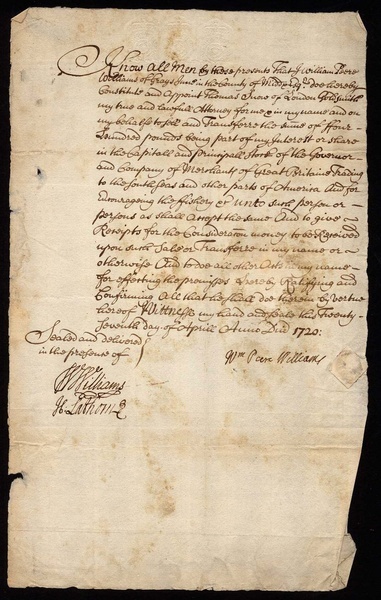 Know all Men by these presents That I William Peere
Williams of Grays Inne in the County of Middx Esqr. doe hereby
Constitute and Appoint Thomas Snow of London Goldsmith
my true and lawfull Attorney for me in my name and on
my behalfe to Sell and Transferre the summe of ffour
hundred pounds being part of my Interest or share
in the Capitall and principall Stock of the Governor
and Company of Merchants of Great Britaine Trading
to the South seas and other parts of America And for
Encouraging the ffishery &c Unto such person or
persons as shall accept the same And to give
Receipts for the Consideration money to be Received
upon such Sale or Transferre in my name or
otherwise And to doe all other Acts in my name
for effecting the premisses hereby Ratifying and
Confirming All that he shall doe therein by vertue
hereof Wittness my hand and seale this Twenty
Seventh day of Aprill Anno Dni 1720.
Sealed and delivered
in the presence of
Wm Peere Williams
Williams